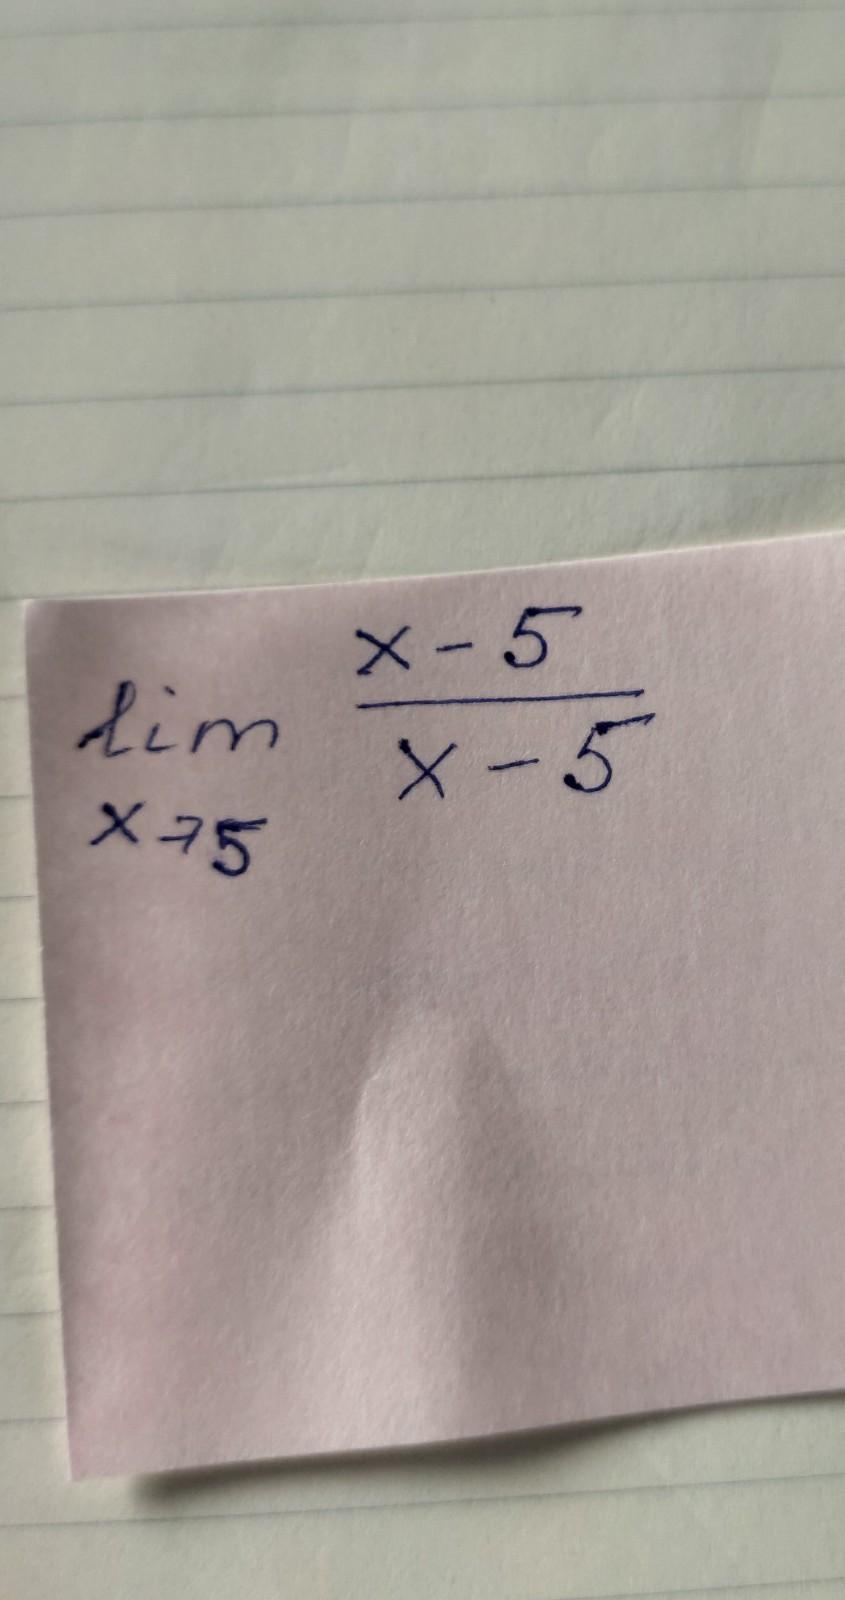 lim x - 5 / x - 5
x → 5